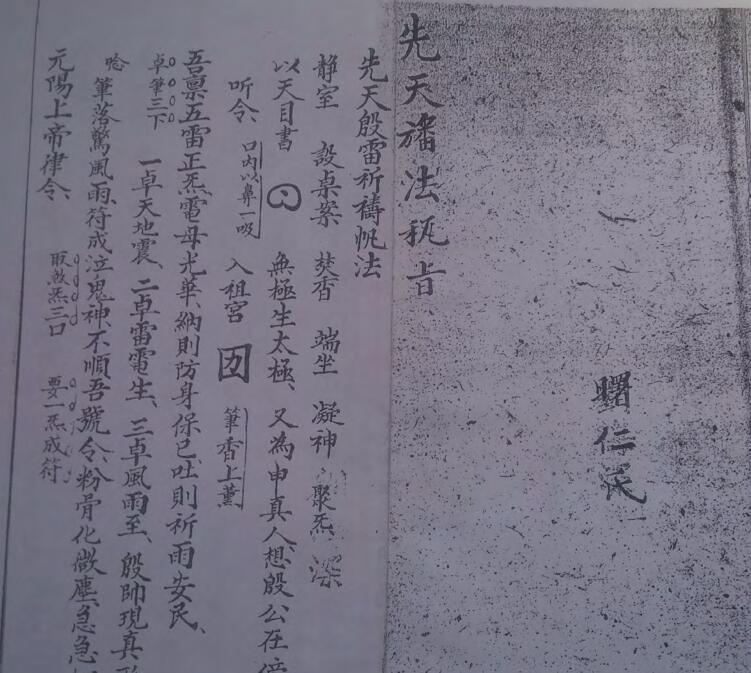 曙仁
先天旛法秘旨
先天殷雷祈禱帆法
静室 設桌案 焚香 端坐 凝神 聚炁 深
以天目書 無極生太極、又為申真人、想殷公在
听令、 口内以鼻一吸 入祖宮 筆香上薰
吾禀五雷正炁、雷母光華、納則防身保己、吐則祈雨安民、
卓筆三下 一卓天地震、二卓雷電生、三卓風雨至、殷帥現真
唸 筆落驚風雨、符成泣鬼神、不順吾號令、粉骨化微塵、急急
元陽上帝律令、 取煞炁三口 要一炁成符